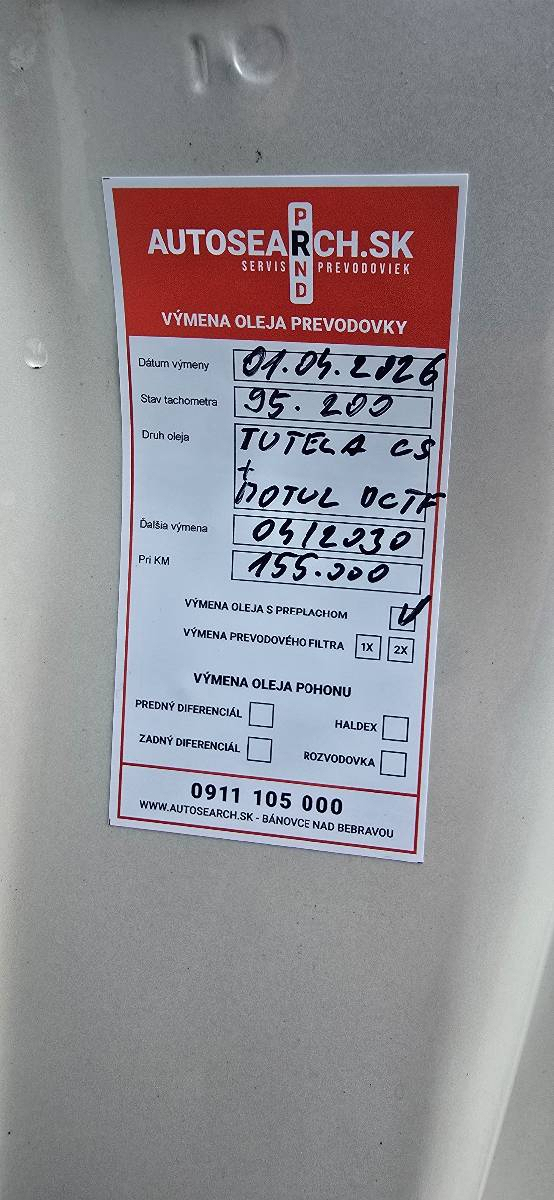 10
AUTOSEARCH.SK
P
R
N
D
SERVIS PREVODOVIEK
VÝMENA OLEJA PREVODOVKY
Dátum výmeny 01.04.2026
Stav tachometra 95.200
Druh oleja TUTELA CS
+
MOTUL DCTF
Ďalšia výmena 04/2030
Pri KM 155.000
VÝMENA OLEJA S PREPLACHOM ✓
VÝMENA PREVODOVÉHO FILTRA 1X 2X
VÝMENA OLEJA POHONU
PREDNÝ DIFERENCIÁL HALDEX
ZADNÝ DIFERENCIÁL ROZVODOVKA
0911 105 000
WWW.AUTOSEARCH.SK - BÁNOVCE NAD BEBRAVOU